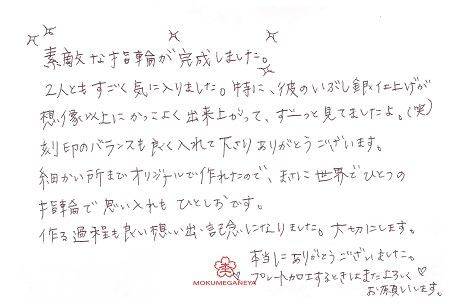 素敵な指輪が完成しました。
2人ともすごく気に入りました。特に、彼のいぶし銀仕上げが
想像以上にかっこよく出来上がって、ずーっと見てましたよ。(笑)
刻印のバランスも良く入れて下さりありがとうございます。
細かい所までオリジナルで作れたので、まさに世界でひとつの
指輪で思い入れもひとしおです。
作る過程も良い想い出・記念になりました。大切にします。
本当にありがとうございました。
プレート加工するときはまたよろしく
お願いします。
MOKUMEGANEYA